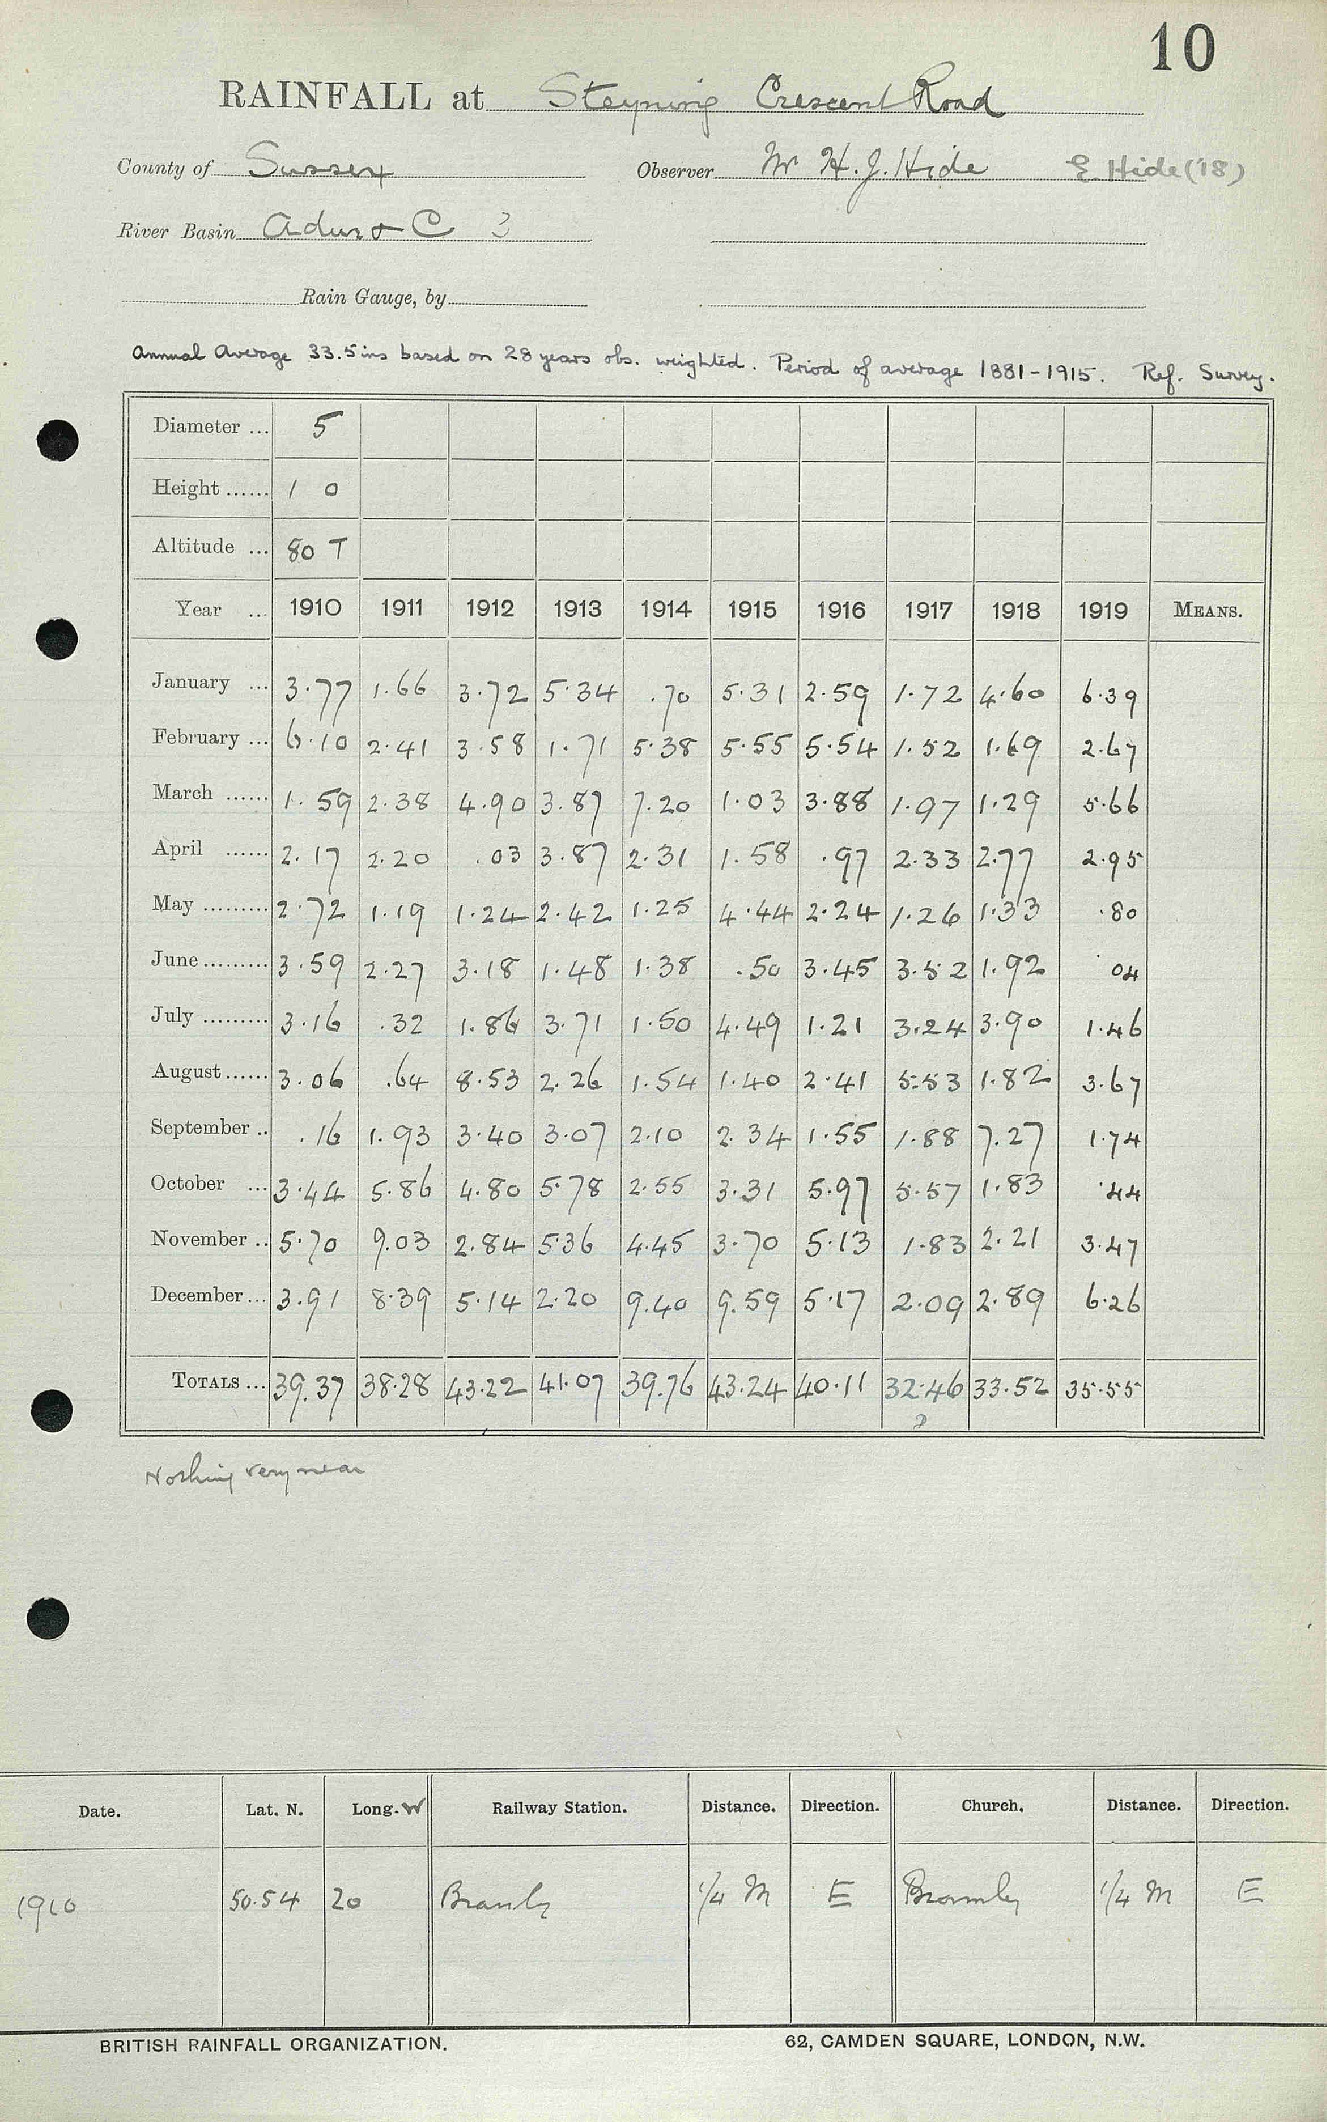 10
RAINFALL at Steyning Crescent Road
County of Sussex Observer Mr H. J. Hide E Hide ('18)
River Basin Adur & C 3
Rain Gauge, by
Annual Average 33.5 ins based on 28 years obs. weighted. Period of average 1881-1915. Ref. Survey.
Diameter ... 5
Height ...... 1 0
Altitude ... 80 T
Year ... 1910 1911 1912 1913 1914 1915 1916 1917 1918 1919 MEANS.
January ... 3.77 1.66 3.72 5.34 .70 5.31 2.59 1.72 4.60 6.39
February ... 6.10 2.41 3.58 1.71 5.38 5.55 5.54 1.52 1.69 2.67
March ...... 1.59 2.38 4.90 3.87 7.20 1.03 3.88 1.97 1.29 5.66
April ...... 2.17 2.20 .03 3.87 2.31 1.58 .97 2.33 2.77 2.95
May ......... 2.72 1.19 1.24 2.42 1.25 4.44 2.24 1.26 1.33 .80
June ......... 3.59 2.27 3.18 1.48 1.38 .50 3.45 3.52 1.92 04
July ......... 3.16 .32 1.86 3.71 1.50 4.49 1.21 3.24 3.90 1.46
August ...... 3.06 .64 8.53 2.26 1.54 1.40 2.41 5.53 1.82 3.67
September .. .16 1.93 3.40 3.07 2.10 2.34 1.55 1.88 7.27 1.74
October ... 3.44 5.86 4.80 5.78 2.55 3.31 5.97 5.57 1.83 .44
November .. 5.70 9.03 2.84 5.36 4.45 3.70 5.13 1.83 2.21 3.47
December ... 3.91 8.39 5.14 2.20 9.40 9.59 5.17 2.09 2.89 6.26
TOTALS ... 39.37 38.28 43.22 41.07 39.76 43.24 40.11 32.46 33.52 35.55
?
Nothing very near
Date. Lat. N. Long. W Railway Station. Distance. Direction. Church. Distance. Direction.
1910 50.54 20 1/4 M E 1/4 M E
BRITISH RAINFALL ORGANIZATION. 62, CAMDEN SQUARE, LONDON, N.W.